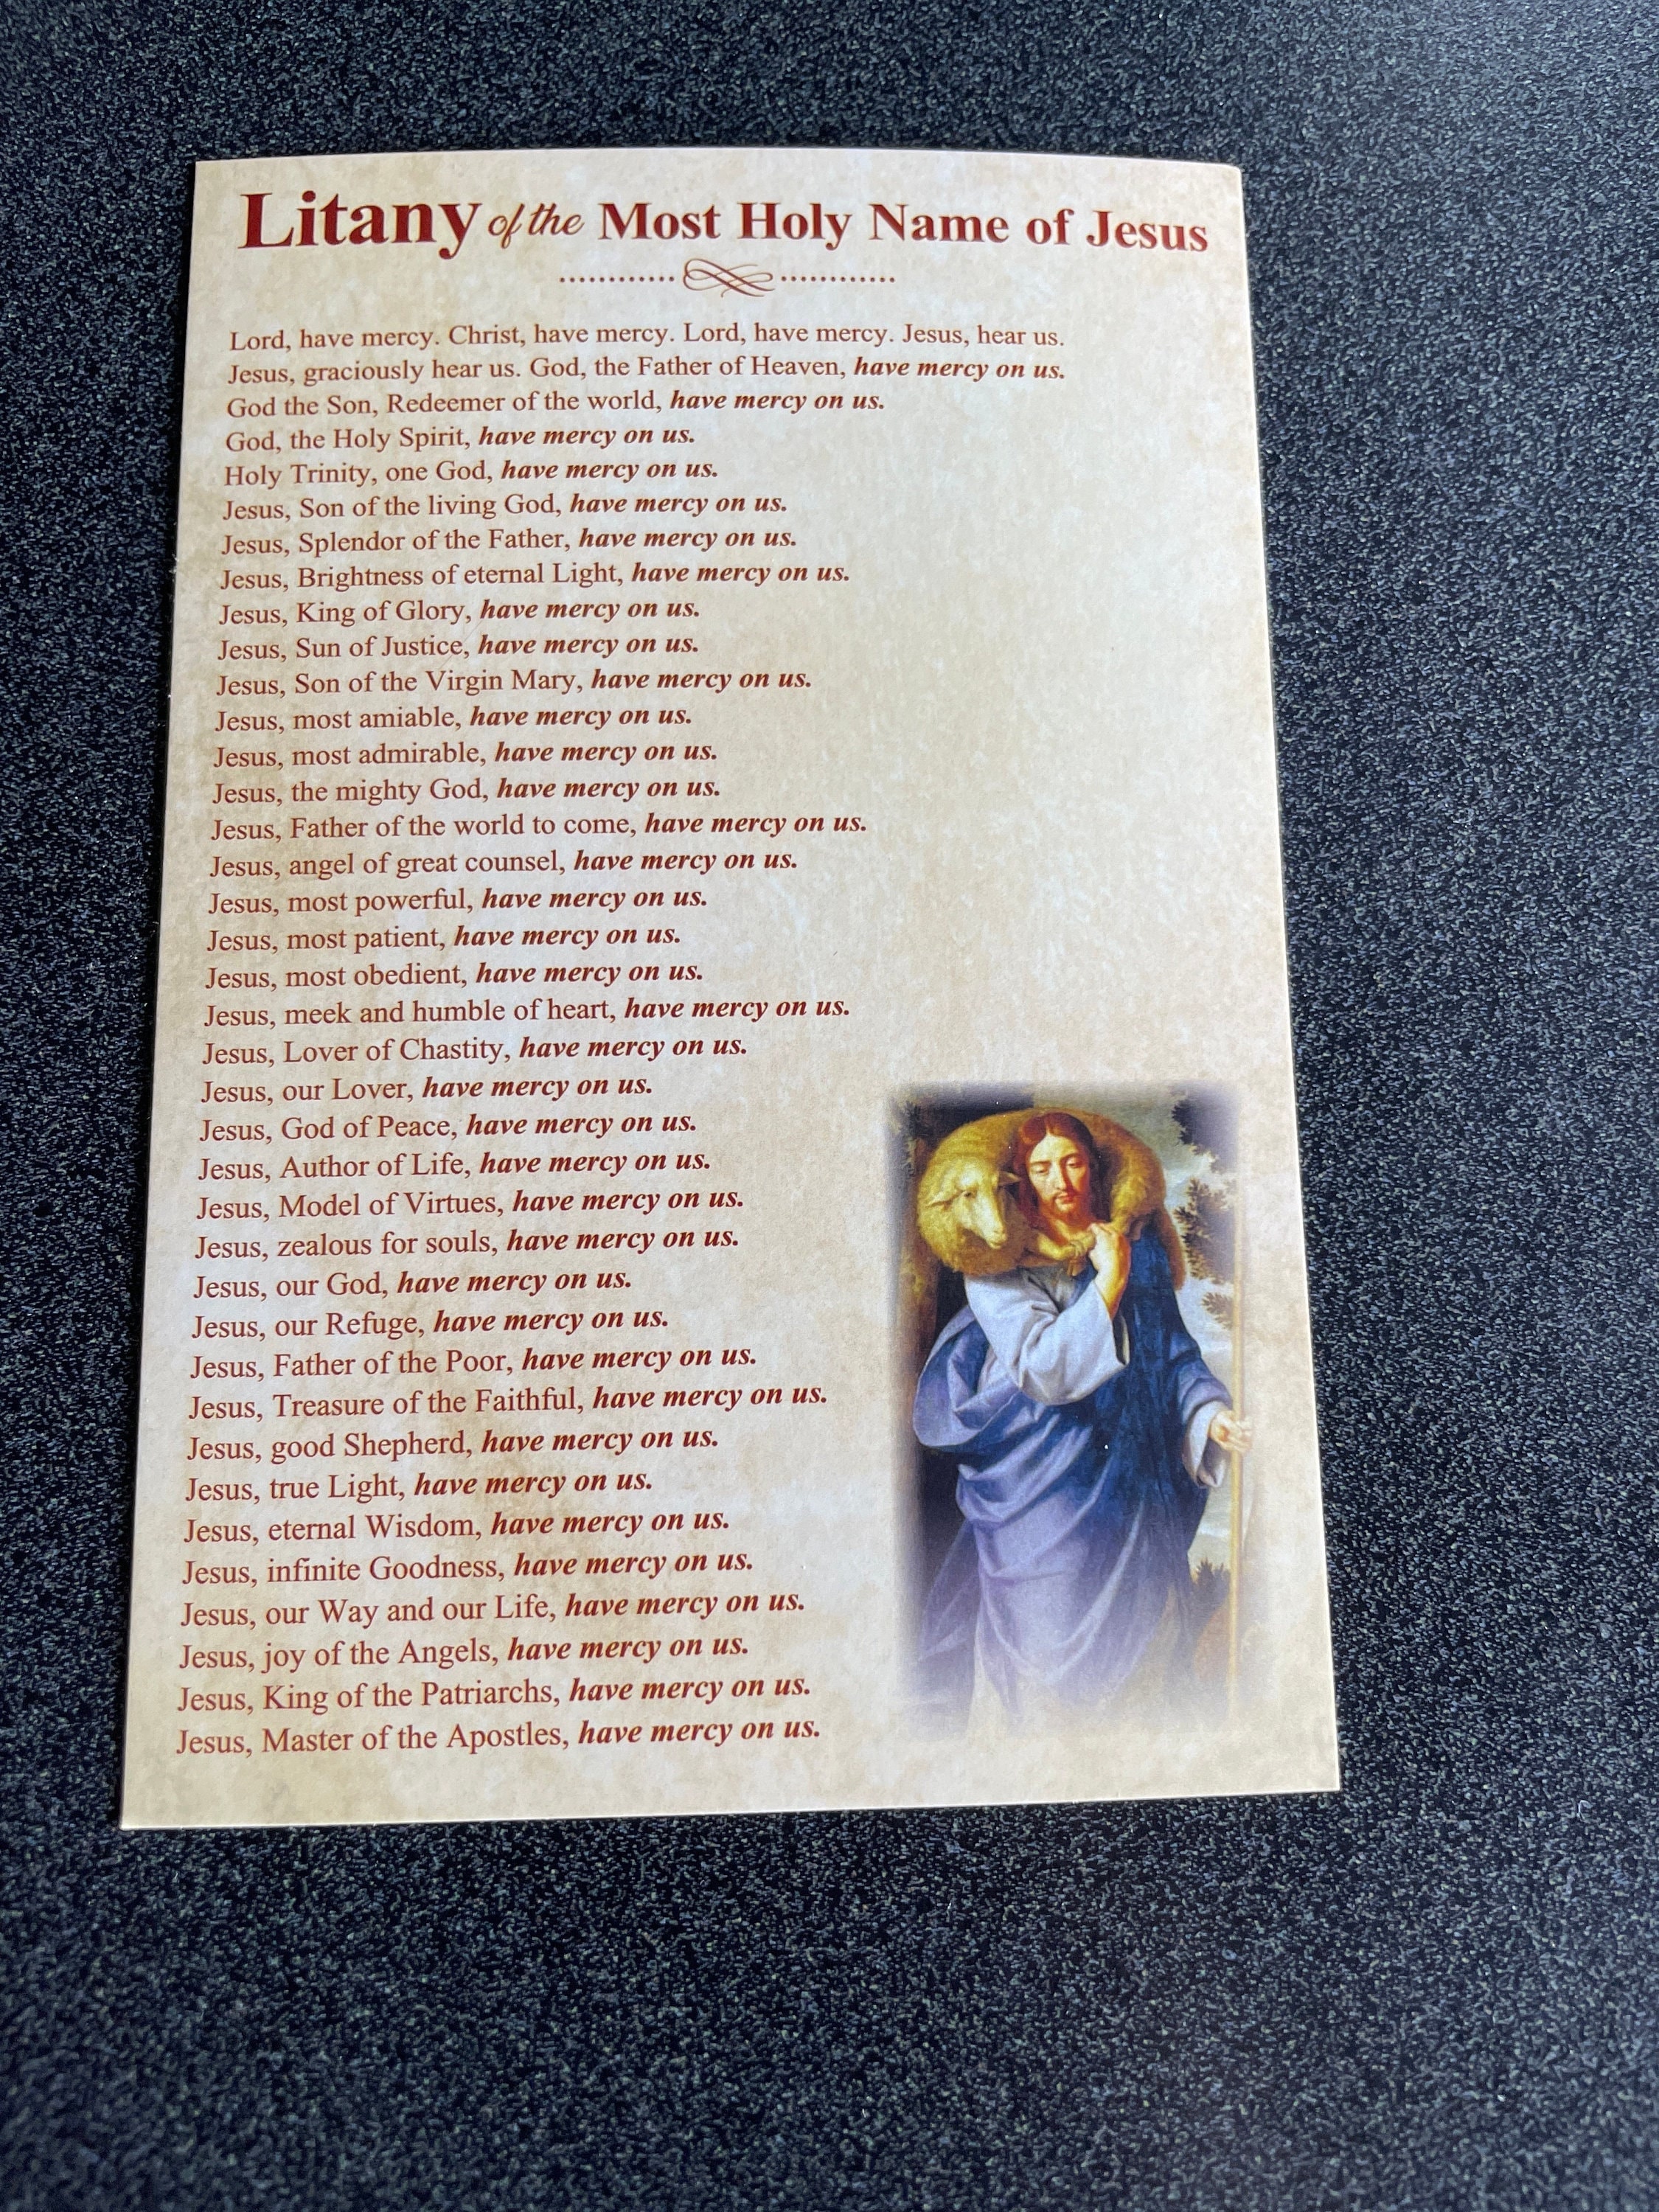 Litany of the Most Holy Name of Jesus
Lord, have mercy. Christ, have mercy. Lord, have mercy. Jesus, hear us.
Jesus, graciously hear us. God, the Father of Heaven, have mercy on us.
God the Son, Redeemer of the world, have mercy on us.
God, the Holy Spirit, have mercy on us.
Holy Trinity, one God, have mercy on us.
Jesus, Son of the living God, have mercy on us.
Jesus, Splendor of the Father, have mercy on us.
Jesus, Brightness of eternal Light, have mercy on us.
Jesus, King of Glory, have mercy on us.
Jesus, Sun of Justice, have mercy on us.
Jesus, Son of the Virgin Mary, have mercy on us.
Jesus, most amiable, have mercy on us.
Jesus, most admirable, have mercy on us.
Jesus, the mighty God, have mercy on us.
Jesus, Father of the world to come, have mercy on us.
Jesus, angel of great counsel, have mercy on us.
Jesus, most powerful, have mercy on us.
Jesus, most patient, have mercy on us.
Jesus, most obedient, have mercy on us.
Jesus, meek and humble of heart, have mercy on us.
Jesus, Lover of Chastity, have mercy on us.
Jesus, our Lover, have mercy on us.
Jesus, God of Peace, have mercy on us.
Jesus, Author of Life, have mercy on us.
Jesus, Model of Virtues, have mercy on us.
Jesus, zealous for souls, have mercy on us.
Jesus, our God, have mercy on us.
Jesus, our Refuge, have mercy on us.
Jesus, Father of the Poor, have mercy on us.
Jesus, Treasure of the Faithful, have mercy on us.
Jesus, good Shepherd, have mercy on us.
Jesus, true Light, have mercy on us.
Jesus, eternal Wisdom, have mercy on us.
Jesus, infinite Goodness, have mercy on us.
Jesus, our Way and our Life, have mercy on us.
Jesus, joy of the Angels, have mercy on us.
Jesus, King of the Patriarchs, have mercy on us.
Jesus, Master of the Apostles, have mercy on us.